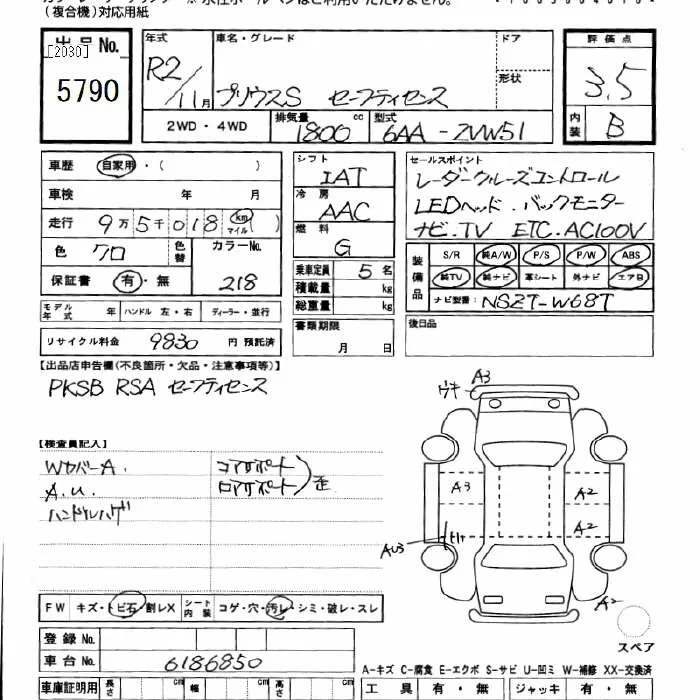 (複合機)対応用紙
出品No.
[2030]
5790
年式 R2/11月
車名・グレード プリウスS セーフティセンス
ドア
形状
2WD・4WD
排気量 1800 cc
型式 6AA-ZVW51
評価点 3.5
内装 B
車歴 自家用・( )
車検 年 月
走行 9万5千018 km マイル( )
色 クロ
色替
カラーNo. 218
保証書 有・無
モデル年式 年
ハンドル 左・右
ディーラー・並行
リサイクル料金 9830 円 預託済
シフト IAT
冷房 AAC
燃料 G
乗車定員 5名
積載量 kg
総重量 kg
書類期限 月 日
セールスポイント
レーダークルーズコントロール
LEDヘッド.バックモニター
ナビ.TV ETC.AC100V
装備品
S/R 純A/W P/S P/W ABS
純TV 純ナビ 革シート 外ナビ エアB
ナビ型番 NSZT-W68T
後日品
【出品店申告欄(不良箇所・欠品・注意事項等)】
PKSB RSA セーフティセンス
【検査員記入】
WカバーA.
A.U.
ハンドルハゲ
コアサポート
ロアサポート 歪
FW キズ・トビ石・割レX
シート内装 コゲ・穴・汚レ・シミ・破レ・スレ
登録No.
車台No. 6186850
車庫証明用 長さ cm 幅 cm 高さ cm
ウキ A3
A3
A2
A2
AU3
A2
スペア
A-キズ C-腐食 E-エクボ S-サビ U-凹ミ W-補修 XX-交換済
工具 有・無 ジャッキ 有・無